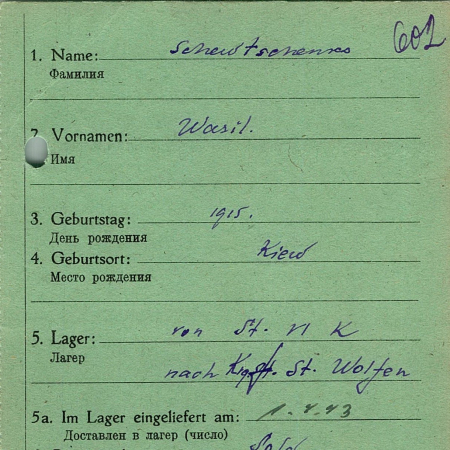 602
1. Name: Schewtschenko
Фамилия
2. Vornamen: Wasil.
Имя
3. Geburtstag: 1915.
День рождения
4. Geburtsort: Kiew
Место рождения
5. Lager: von St. VI K
Лагерь
nach St. Wolfen
5a. Im Lager eingeliefert am: 1.4.43
Доставлен в лагерь (число)